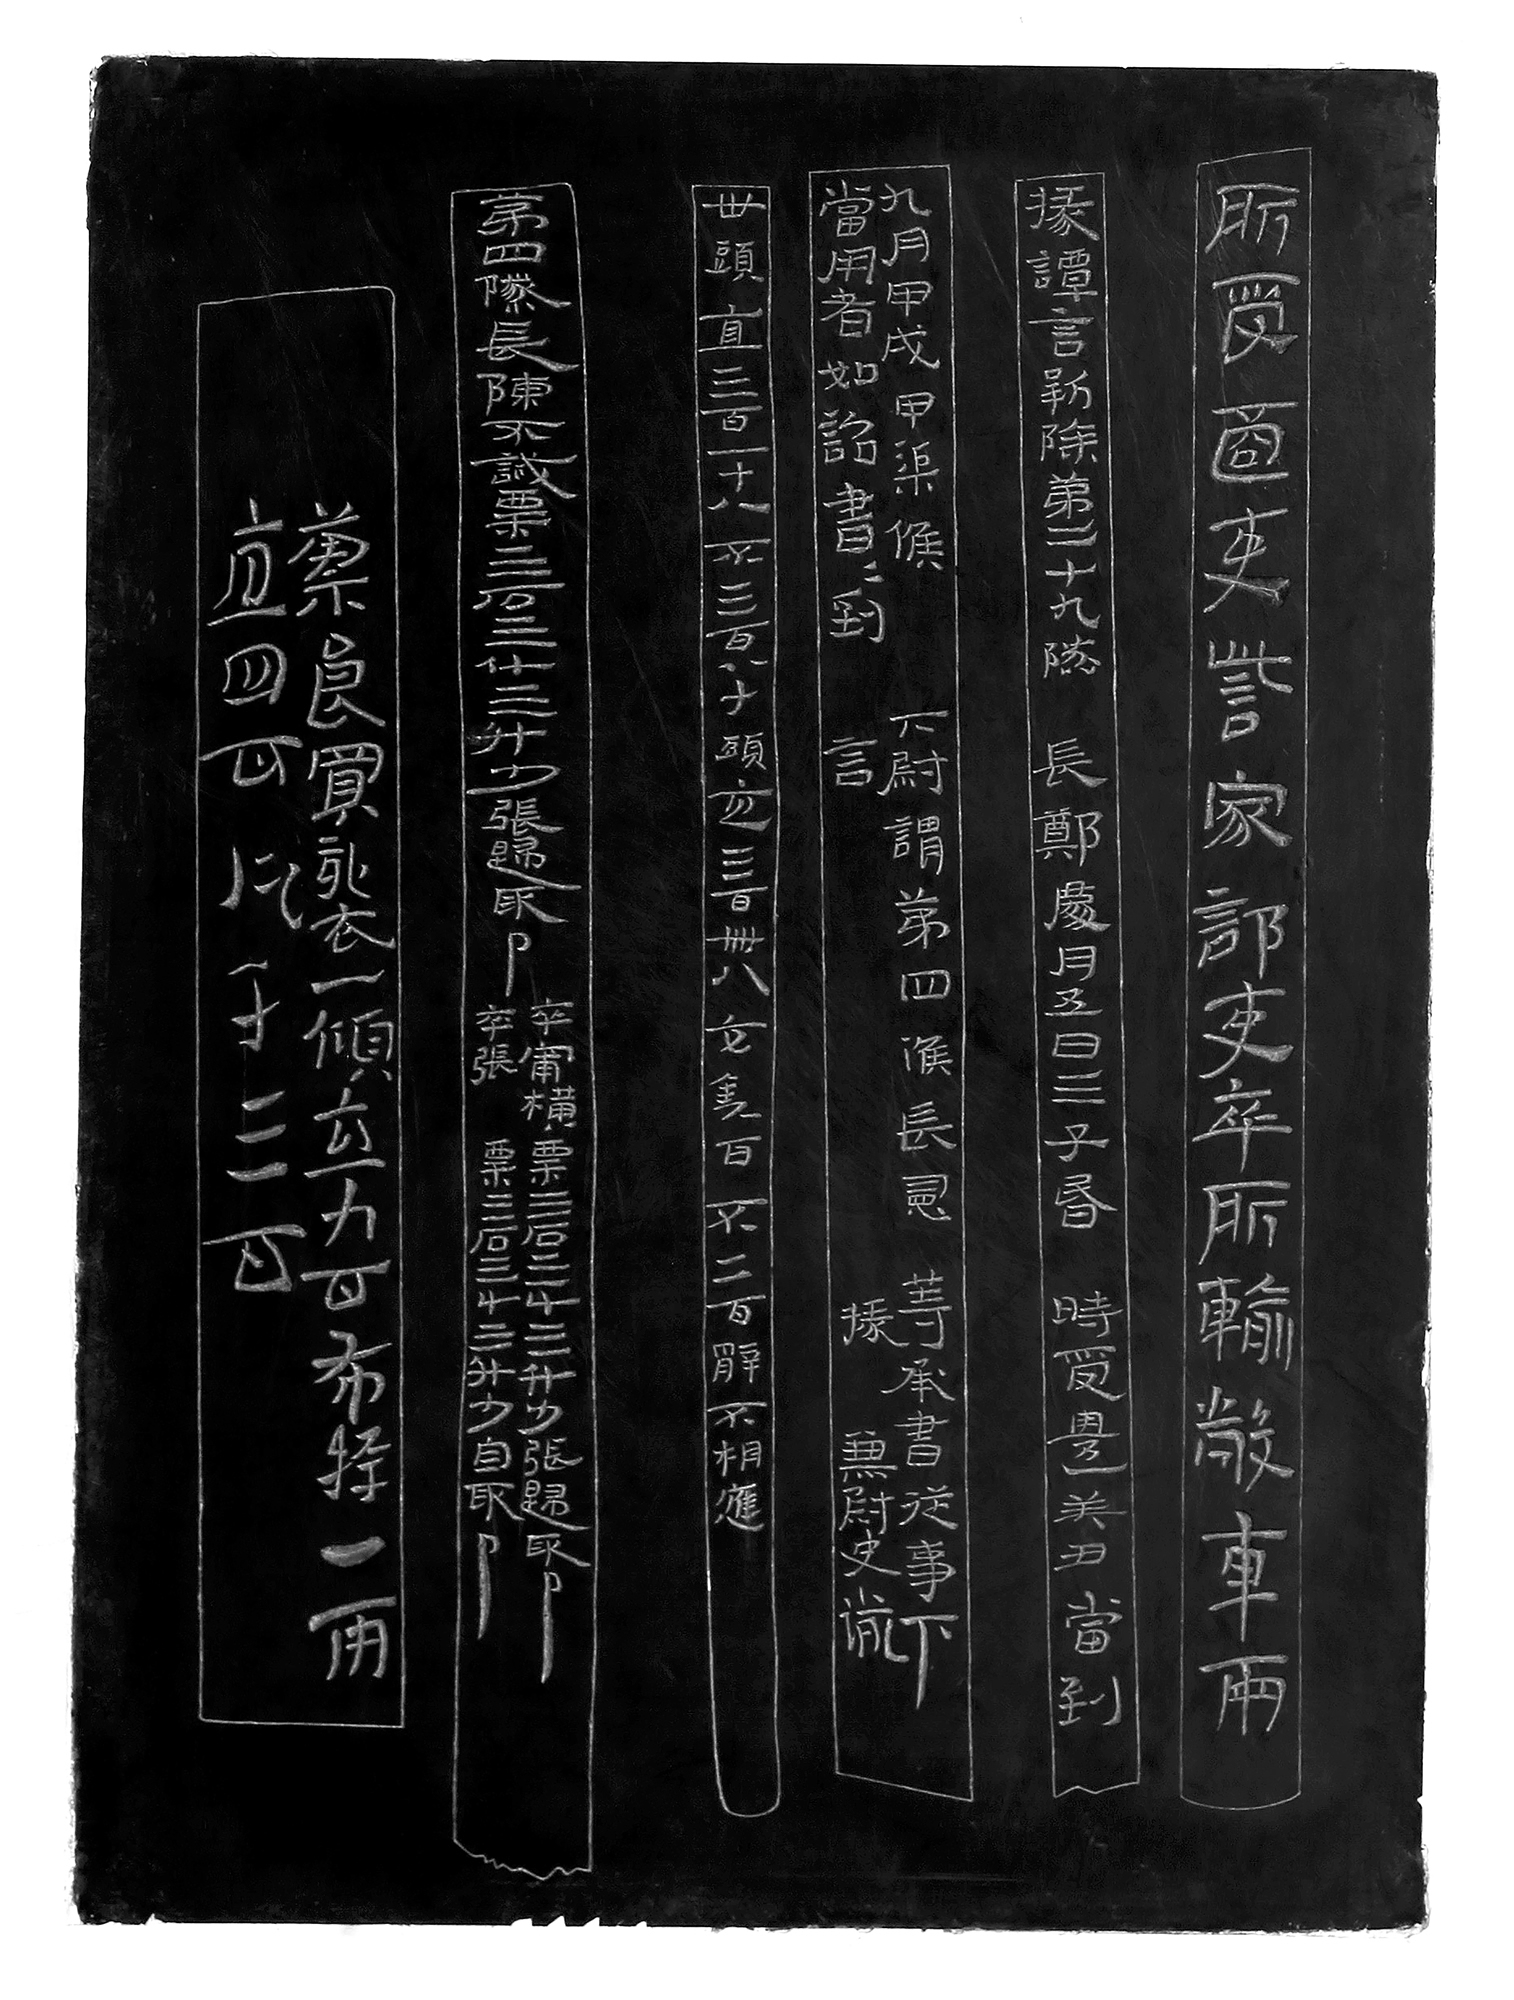 所受適吏訾家部吏卒所輸穀車兩
掾譚言新除第二十九隧長鄭慶月五日壬子昏時受遣癸丑當到
九月甲戌甲渠候下尉謂第四候長憲等承書從事下
當用者如詔書〻到言掾兼尉史嚴
卅頭直三百一十八不三百八十頭直三百卌八交隻百不二百辭不相應
第四隧長陳不識粟三石三斗三升少張歸取卩
卒甯橫粟三石三斗三升少張歸取卩
卒張粟三石三斗三升少自取卩
蔡良買裘一領直九百布絝一兩
直四百凡千三百